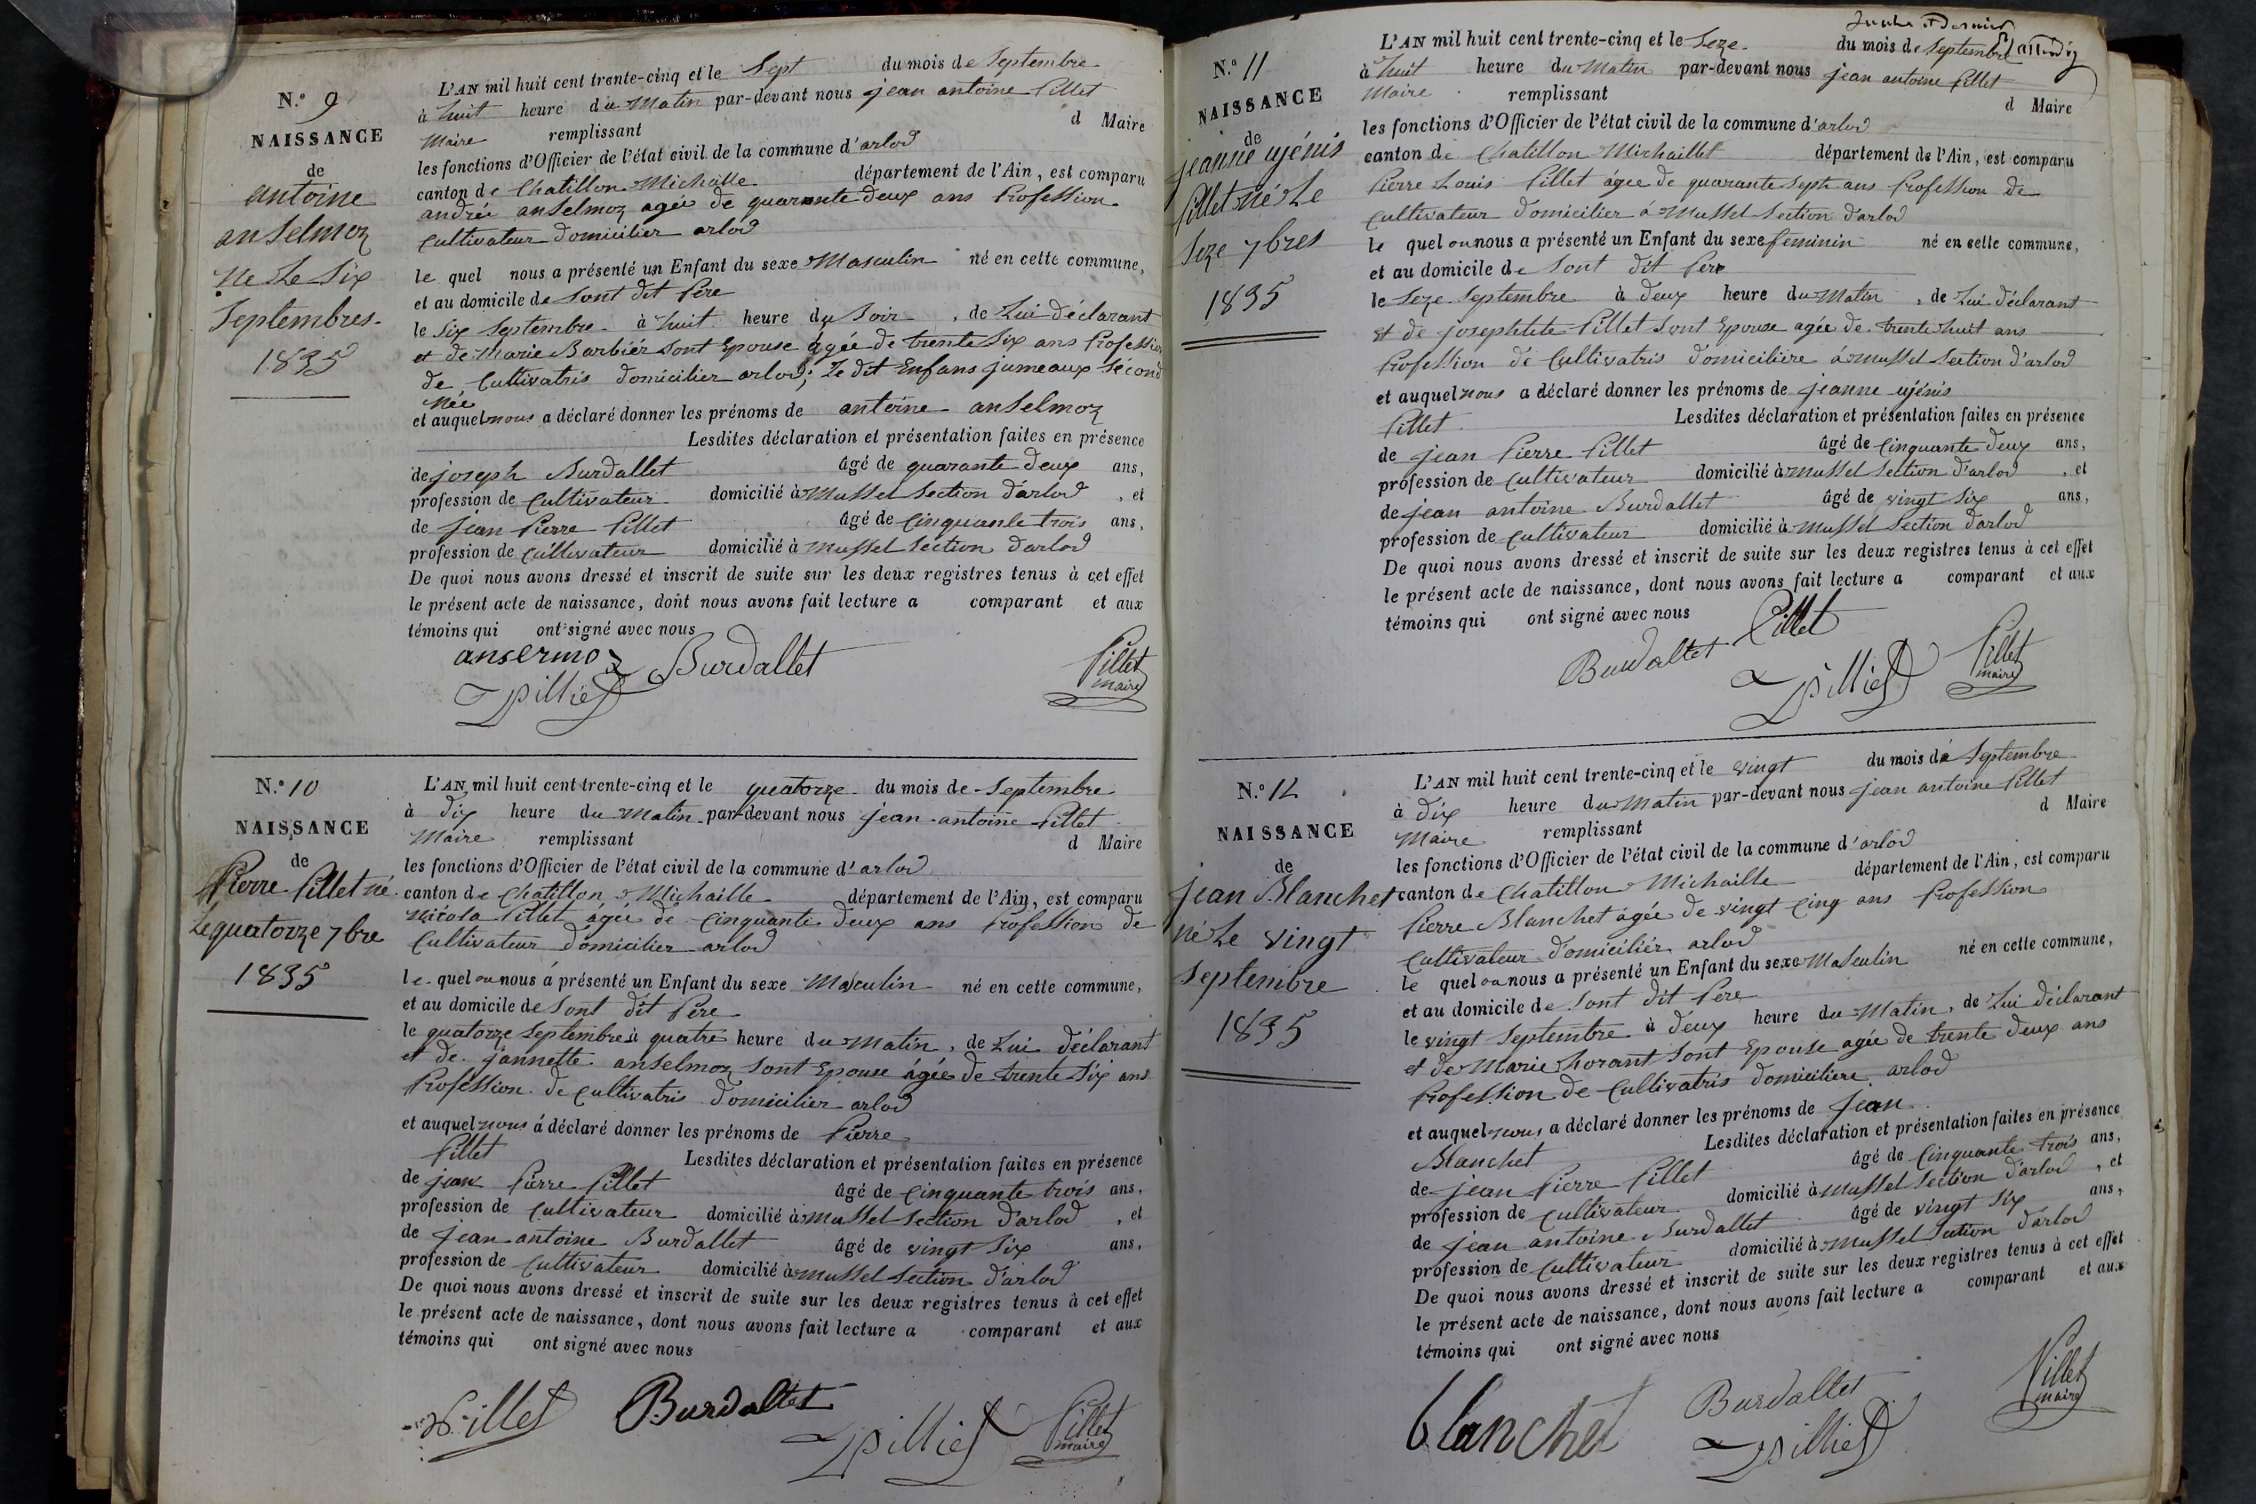 N.º 9
NAISSANCE
de
antoine
anselmoz
né Le Six
Septembres
1835
L'AN mil huit cent trente-cinq et le Sept du mois de Septembre
à huit heure du Matin par-devant nous jean antoine Pillet
Maire remplissant d Maire
les fonctions d'Officier de l'état civil de la commune d'arlod
canton de Chatillon Michaille département de l'Ain, est comparu
andréé anselmoz agée de quarante deux ans Profession
Cultivateur domicilier arlod
le quel nous a présenté un Enfant du sexe Masculin né en cette commune,
et au domicile de Sont dit Pere
le Six Septembre à huit heure du Soir, de Lui déclarant
et de Marie Barbiér Sont Epouse agée de trente Six ans Profession
de Cultivatris domicilier arlod; Le dit Enfans jumeaux Sécond
née
et auquel nous a déclaré donner les prénoms de antoine anselmoz
Lesdites déclaration et présentation faites en présence
de joseph Burdallet âgé de quarante deux ans,
profession de Cultivateur domicilié à Mussel Section d'arlod, et
de jean Pierre Pillet âgé de Cinquante trois ans,
profession de Cultivateur domicilié à Mussel Section d'arlod
De quoi nous avons dressé et inscrit de suite sur les deux registres tenus à cet effet
le présent acte de naissance, dont nous avons fait lecture a comparant et aux
témoins qui ont signé avec nous
ansermoz Burdallet Pillet
maire
Pillet
N.º 10
NAISSANCE
de
Pierre Pillet né
Le quatorze 7bre
1835
L'AN mil huit cent trente-cinq et le quatorze du mois de Septembre
à dix heure du Matin par-devant nous jean antoine Pillet
Maire remplissant d Maire
les fonctions d'Officier de l'état civil de la commune d'arlod
canton de Chatillon Michaille département de l'Ain, est comparu
Nicola Pillet ágée de Cinquante deux ans Profession de
Cultivateur domicilier arlod
le quel ou nous a présenté un Enfant du sexe Masculin né en cette commune,
et au domicile de Sont dit Pere
le quatorze Septembre à quatre heure du Matin, de Lui déclarant
et de jannette anselmoz Sont Epouse ágée de trente Six ans
Profession de Cultivatris domicilier arlod
et auquel nous á déclaré donner les prénoms de Pierre
Pillet Lesdites déclaration et présentation faites en présence
de jean Pierre Pillet âgé de Cinquante trois ans,
profession de Cultivateur domicilié à Mussel Section d'arlod, et
de jean antoine Burdallet âgé de vingt Six ans,
profession de Cultivateur domicilié à Mussel Section d'arlod
De quoi nous avons dressé et inscrit de suite sur les deux registres tenus à cet effet
le présent acte de naissance, dont nous avons fait lecture a comparant et aux
témoins qui ont signé avec nous
Pillet Burdallet Pillet Pillet
maire
N.º 11
NAISSANCE
de
jeanne ujénis
Pillet Né Le
Seze 7bres
1835
L'AN mil huit cent trente-cinq et le Seze du mois de Septembre
à huit heure du Matin par-devant nous jean antoine Pillet
Maire remplissant d Maire
les fonctions d'Officier de l'état civil de la commune d'arlod
canton de Chatillon Michaillet département de l'Ain, est comparu
Pierre Louis Pillet ágee de quarante Sept ans Profession de
Cultivateur domicilier á Mussel Section d'arlod
le quel ou nous a présenté un Enfant du sexe feminin né en cette commune,
et au domicile de Sont dit Pere
le Seze Septembre à deux heure du Matin, de Lui déclarant
et de josephtete Pillet Sont Epouse agée de trente huit ans
Profession de Cultivatris domicilière á Mussel Section d'arlod
et auquel nous a déclaré donner les prénoms de jeanne ujénis
Pillet Lesdites déclaration et présentation faites en présence
de jean Pierre Pillet âgé de Cinquante deux ans,
profession de Cultivateur domicilié à Mussel Section d'arlod, et
de jean antoine Burdallet âgé de vingt Six ans,
profession de Cultivateur domicilié à Mussel Section d'arlod
De quoi nous avons dressé et inscrit de suite sur les deux registres tenus à cet effet
le présent acte de naissance, dont nous avons fait lecture a comparant et aux
témoins qui ont signé avec nous
Pillet
Burdallet Pillet Pillet
maire
N.º 12
NAISSANCE
de
jean Blanchet
né Le vingt
Septembre
1835
L'AN mil huit cent trente-cinq et le vingt du mois de Septembre
à dix heure du Matin par-devant nous jean antoine Pillet
Maire remplissant d Maire
les fonctions d'Officier de l'état civil de la commune d'arlod
canton de Chatillon Michaille département de l'Ain, est comparu
Pierre Blanchet ágée de vingt Cinq ans Profession
Cultivateur domiciliér arlod
le quel ou nous a présenté un Enfant du sexe Masculin né en cette commune,
et au domicile de Sont dit Pere
le vingt Septembre à deux heure du Matin, de Lui déclarant
et de Marie Sont Epouse agée de trente deux ans
Profession de Cultivatris domiciliere arlod
et auquel nous a déclaré donner les prénoms de jean
Blanchet Lesdites déclaration et présentation faites en présence
de jean Pierre Pillet âgé de Cinquante trois ans,
profession de Cultivateur domicilié à Mussel Section d'arlod, et
de jean antoine Burdallet âgé de vingt Six ans,
profession de Cultivateur domicilié à Mussel Section d'arlod
De quoi nous avons dressé et inscrit de suite sur les deux registres tenus à cet effet
le présent acte de naissance, dont nous avons fait lecture a comparant et aux
témoins qui ont signé avec nous
blanchet Burdallet Pillet
maire
Pillet